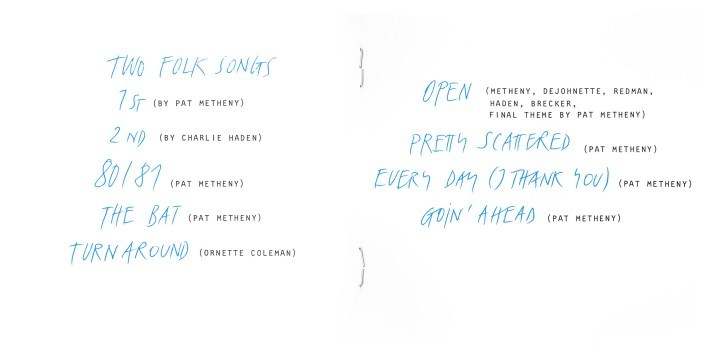 TWO FOLK SONGS
1ST (BY PAT METHENY)
2ND (BY CHARLIE HADEN)
80/81 (PAT METHENY)
THE BAT (PAT METHENY)
TURNAROUND (ORNETTE COLEMAN)
OPEN (METHENY, DEJOHNETTE, REDMAN,
HADEN, BRECKER,
FINAL THEME BY PAT METHENY)
PRETTY SCATTERED (PAT METHENY)
EVERY DAY (I THANK YOU) (PAT METHENY)
GOIN' AHEAD (PAT METHENY)